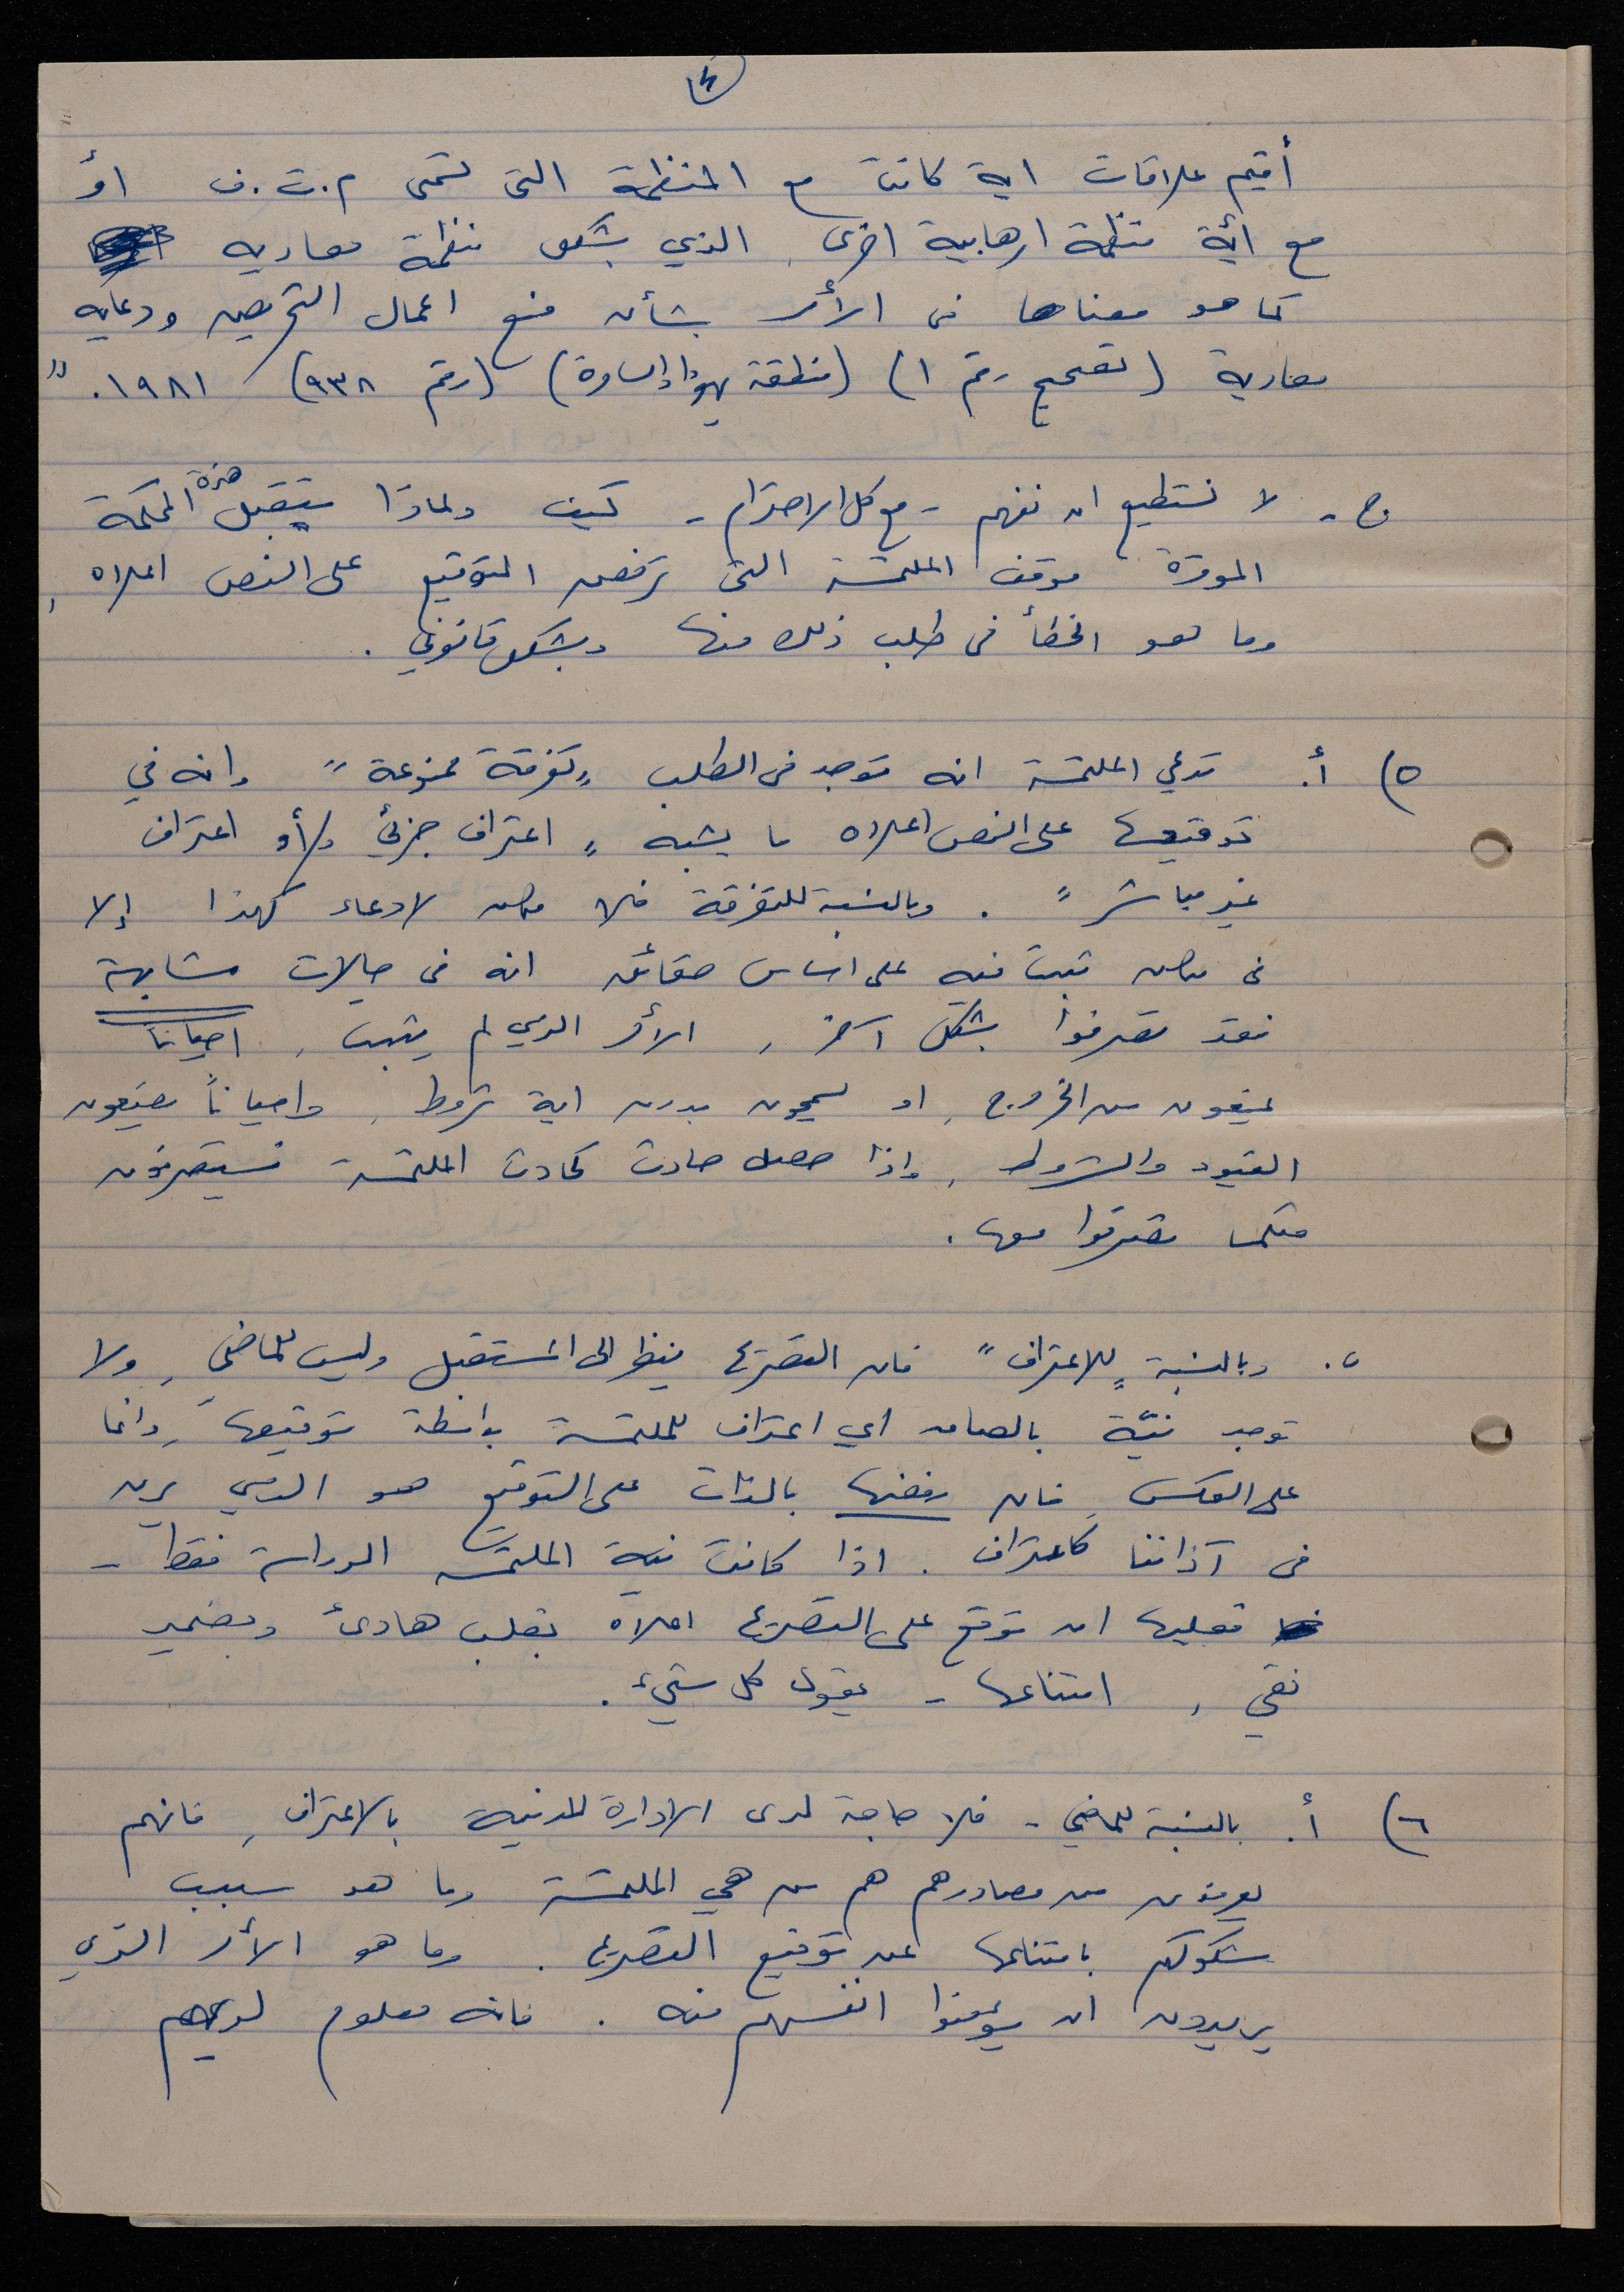 ٤
أقيم علاقات اية كانت مع المنظمة التي تسمى م.ت.ف او
مع اية منظمة ارهابية اخرى، الذي يشكل منظمة معاديه
كما هو معناها في الأمر بشأن منع اعمال التحريض ودعايه
معادية (تصحيح رقم ١) (منطقة يهودا والسامرة) (رقم ٩٣٨) ١٩٨١."
ج - لا نستطيع ان نفهم - مع كل الاحترام - كيف ولماذا ستقبل هذة المحكمة
الموقرة موقف الملتمسة التي ترفض التوقيع على النص اعلاه،
وما هو الخطأ في طلب ذلك منها وبشكل قانوني.
٥) أ. تدعي الملتمسة انه توجد في الطلب "تفرقة ممنوعة" وانه في
توقيعها على النص اعلاه ما يشبه "اعتراف جزئي و/أو اعتراف
غير مباشر". وبالنسبة للتفرقة فلا مكان لادعاء كهذا إلا
في مكان تثبت فيه على اساس حقائق انه في حالات مشابهة
فقد تصرفوا بشكل آخر، الأمر الذي لم يثبت، احياناً
يمنعون من الخروج، او يسمحون بدون اية شروط، واحياناً يضعون
القيود والشروط، واذا حصل حادث كحادث الملتمسة فسيتصرفون
مثلما تصرفوا معها.
ب. وبالنسبة "للاعتراف" فان التصريح ينظر الى المستقبل وليس للماضي، ولا
توجد نيّة بالصاق اي اعتراف للملتمسة بواسطة توقيعها، وانما
على العكس، فان رفضها بالذات على التوقيع هو الذي يرن
في آذاننا كاعتراف. اذا كانت نية الملتمسة الدراسة فقط -
فعليها ان توقع على التصريح اعلاه بقلب هادئ وبضمير
نقي، امتناعها - يقول كل شيء.
٦) أ. بالنسبة للماضي - فلا حاجة لدى الادارة المدنية بالاعتراف، فانهم
يعرفون من مصادرهم هم من هي الملتمسة وما هو سبب
شكوكهم بامتناعها عن توقيع التصريح. وما هو الأمر الذي
يريدون ان يؤمنوا انفسهم منه. فانه معلوم لديهم